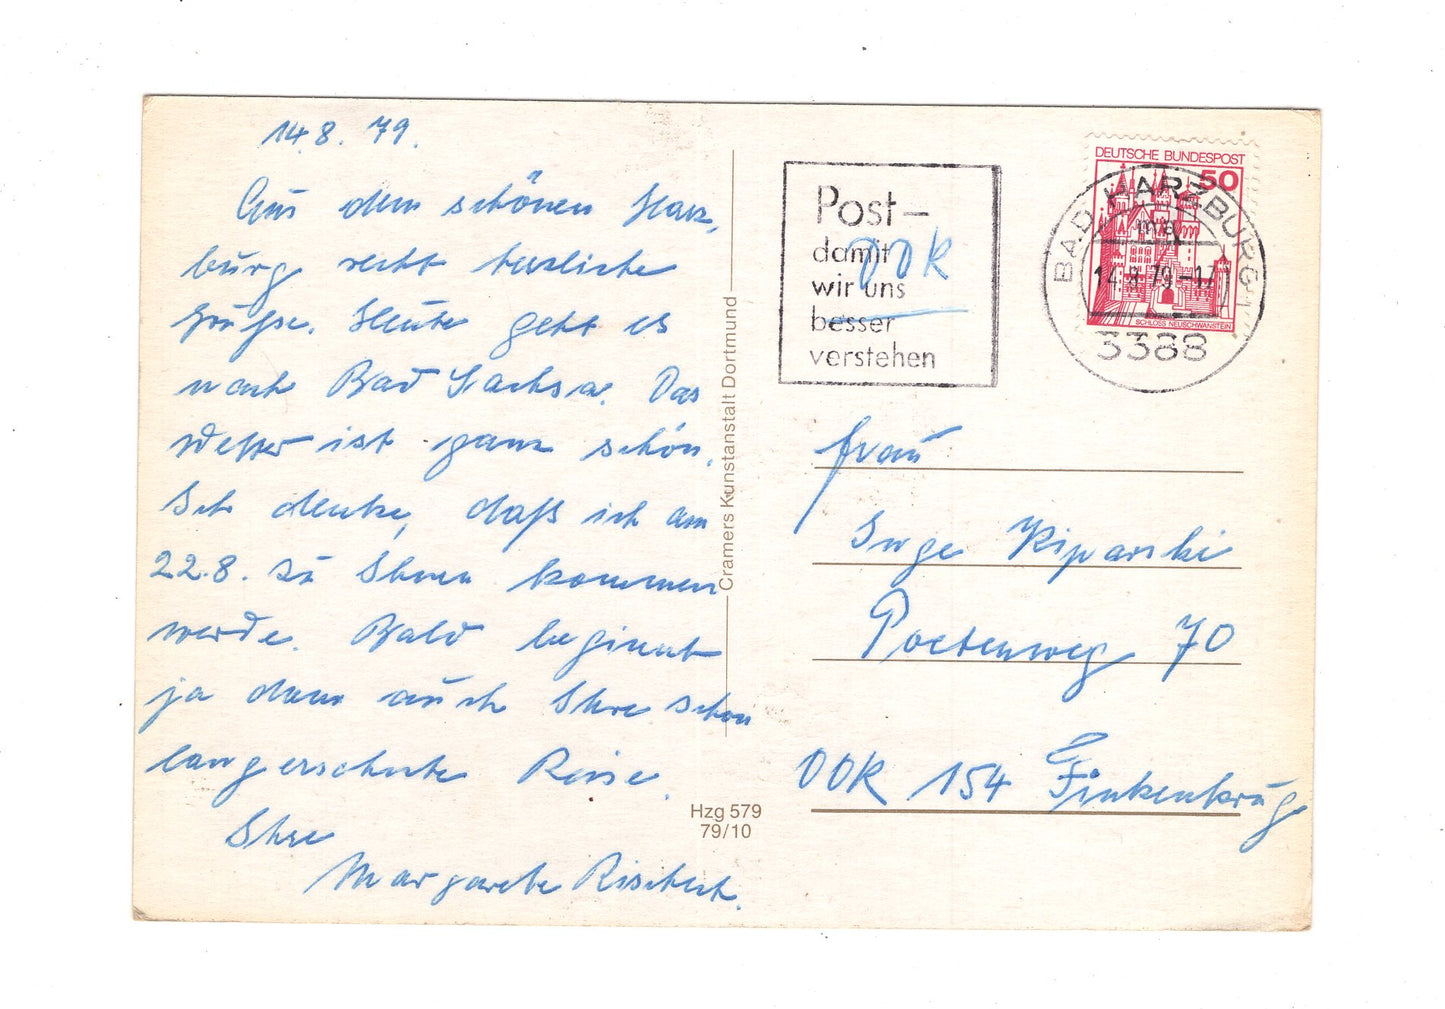 14.8. 79.
Aus dem schönen Harz,
burg recht herzliche
Grüße. Heute geht es
nach Bad Sachsa. Das
Wetter ist ganz schön.
Ich denke, daß ich am
22.8. zu Ihnen kommen
werde. Bald beginnt
ja dann auch Ihre schon
langersehnte Reise.
Ihre
Margarete
Cramers Kunstanstalt Dortmund
Hzg 579
79/10
Post-
damit
wir uns
besser
verstehen
DDR
DEUTSCHE BUNDESPOST
50
SCHLOSS NEUSCHWANSTEIN
BAD HARZBURG 1
ma
14.8.79-17
3388
Frau
Inge Kiparski
Poetenweg 70
DDR 154 Finkenkrug